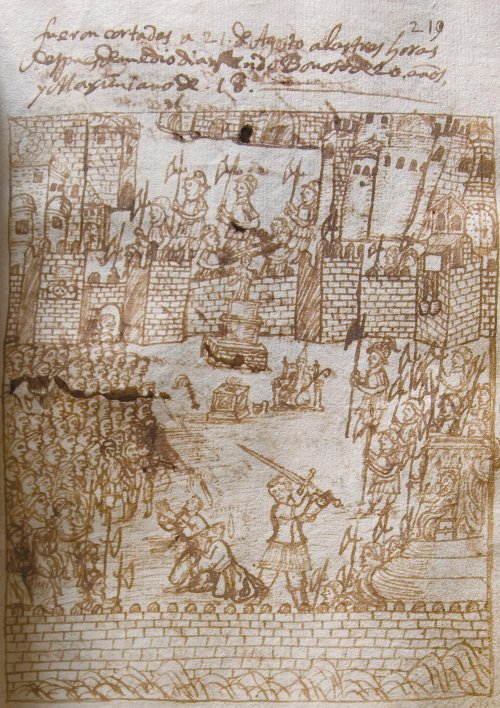 219
fueron cortadas a 21. de Agosto a las tres horas
despues de medio dia siendo Bonoso de 20. años,
y Maximiano de .18.